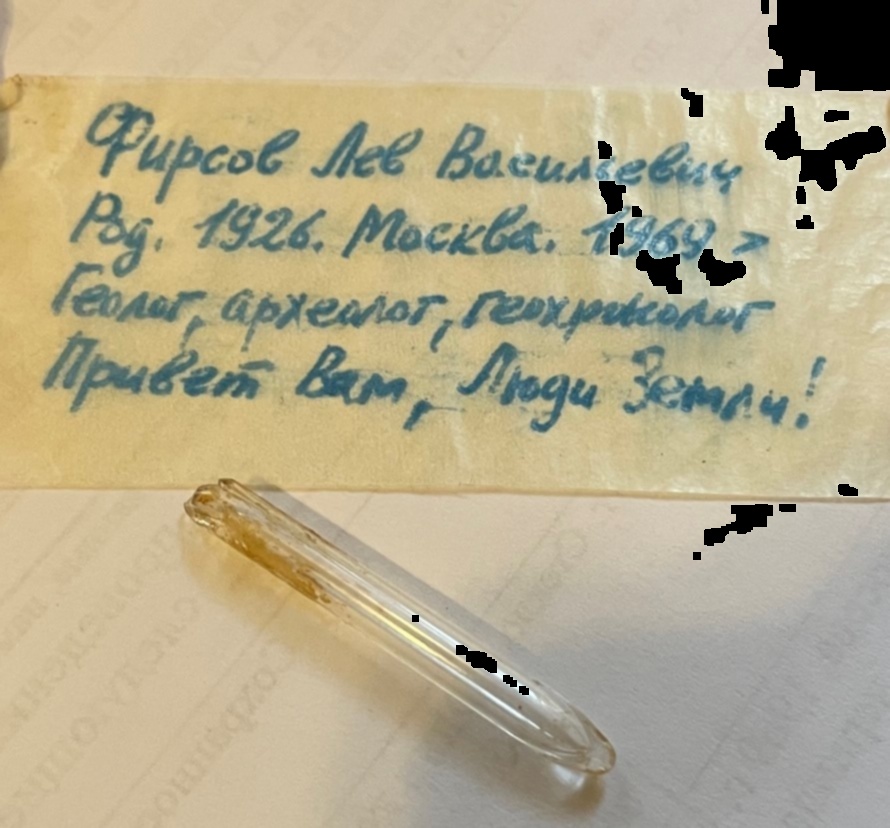 Фирсов Лев Васильевич
Род. 1926. Москва. 1969 >
Геолог, археолог, геохронолог
Привет Вам, Люди Земли!